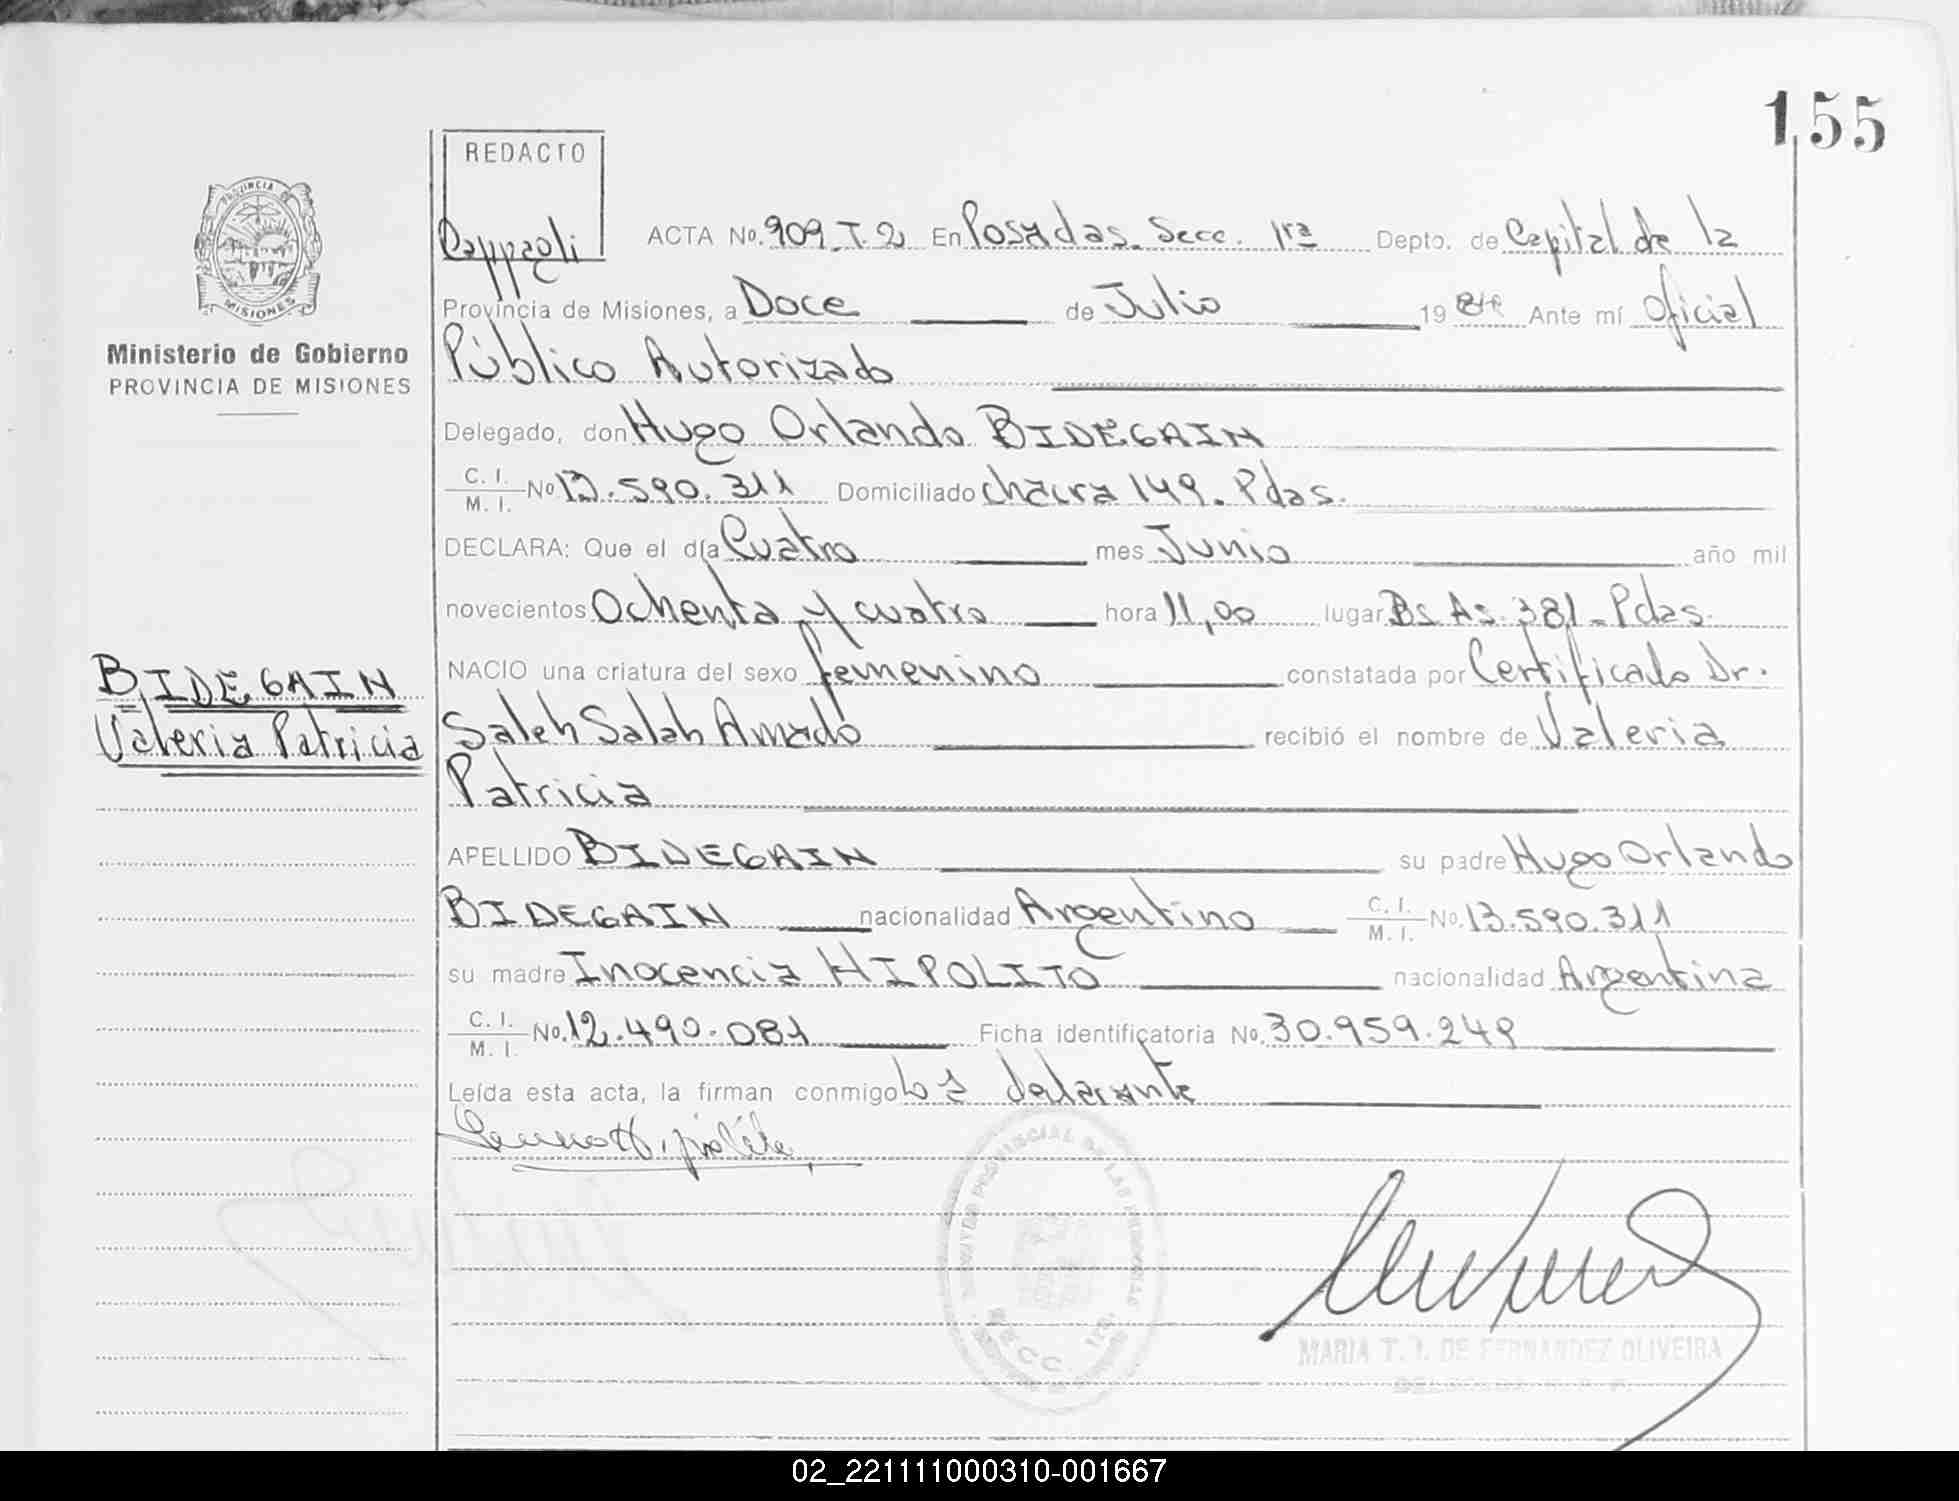 155
REDACTO
Cappagli
PROVINCIA DE
MISIONES
Ministerio de Gobierno
PROVINCIA DE MISIONES
BIDEGAIN
Valeria Patricia
ACTA No. 909 T. 2 En Posadas Secc. 1ra Depto. de Capital de la
Provincia de Misiones, a Doce de Julio 1984 Ante mí Oficial
Público Autorizado
Delegado, don Hugo Orlando BIDEGAIN
C. I. / M. I. No 13.590.311 Domiciliado chacra 149. Pdas.
DECLARA: Que el día Cuatro mes Junio año mil
novecientos Ochenta y cuatro hora 11,00 lugar Bs As. 381 - Pdas.
NACIO una criatura del sexo femenino constatada por Certificado Dr.
Saleh Salah Amado recibió el nombre de Valeria
Patricia
APELLIDO BIDEGAIN su padre Hugo Orlando
BIDEGAIN nacionalidad Argentino C. I. / M. I. No. 13.590.311
su madre Inocencia HIPOLITO nacionalidad Argentina
C. I. / M. I. No. 12.490.081 Ficha identificatoria No. 30.959.249
Leída esta acta, la firman conmigo los declarante
SECC. 1ra.
MARIA T. I. DE FERNANDEZ OLIVEIRA
02_221111000310-001667